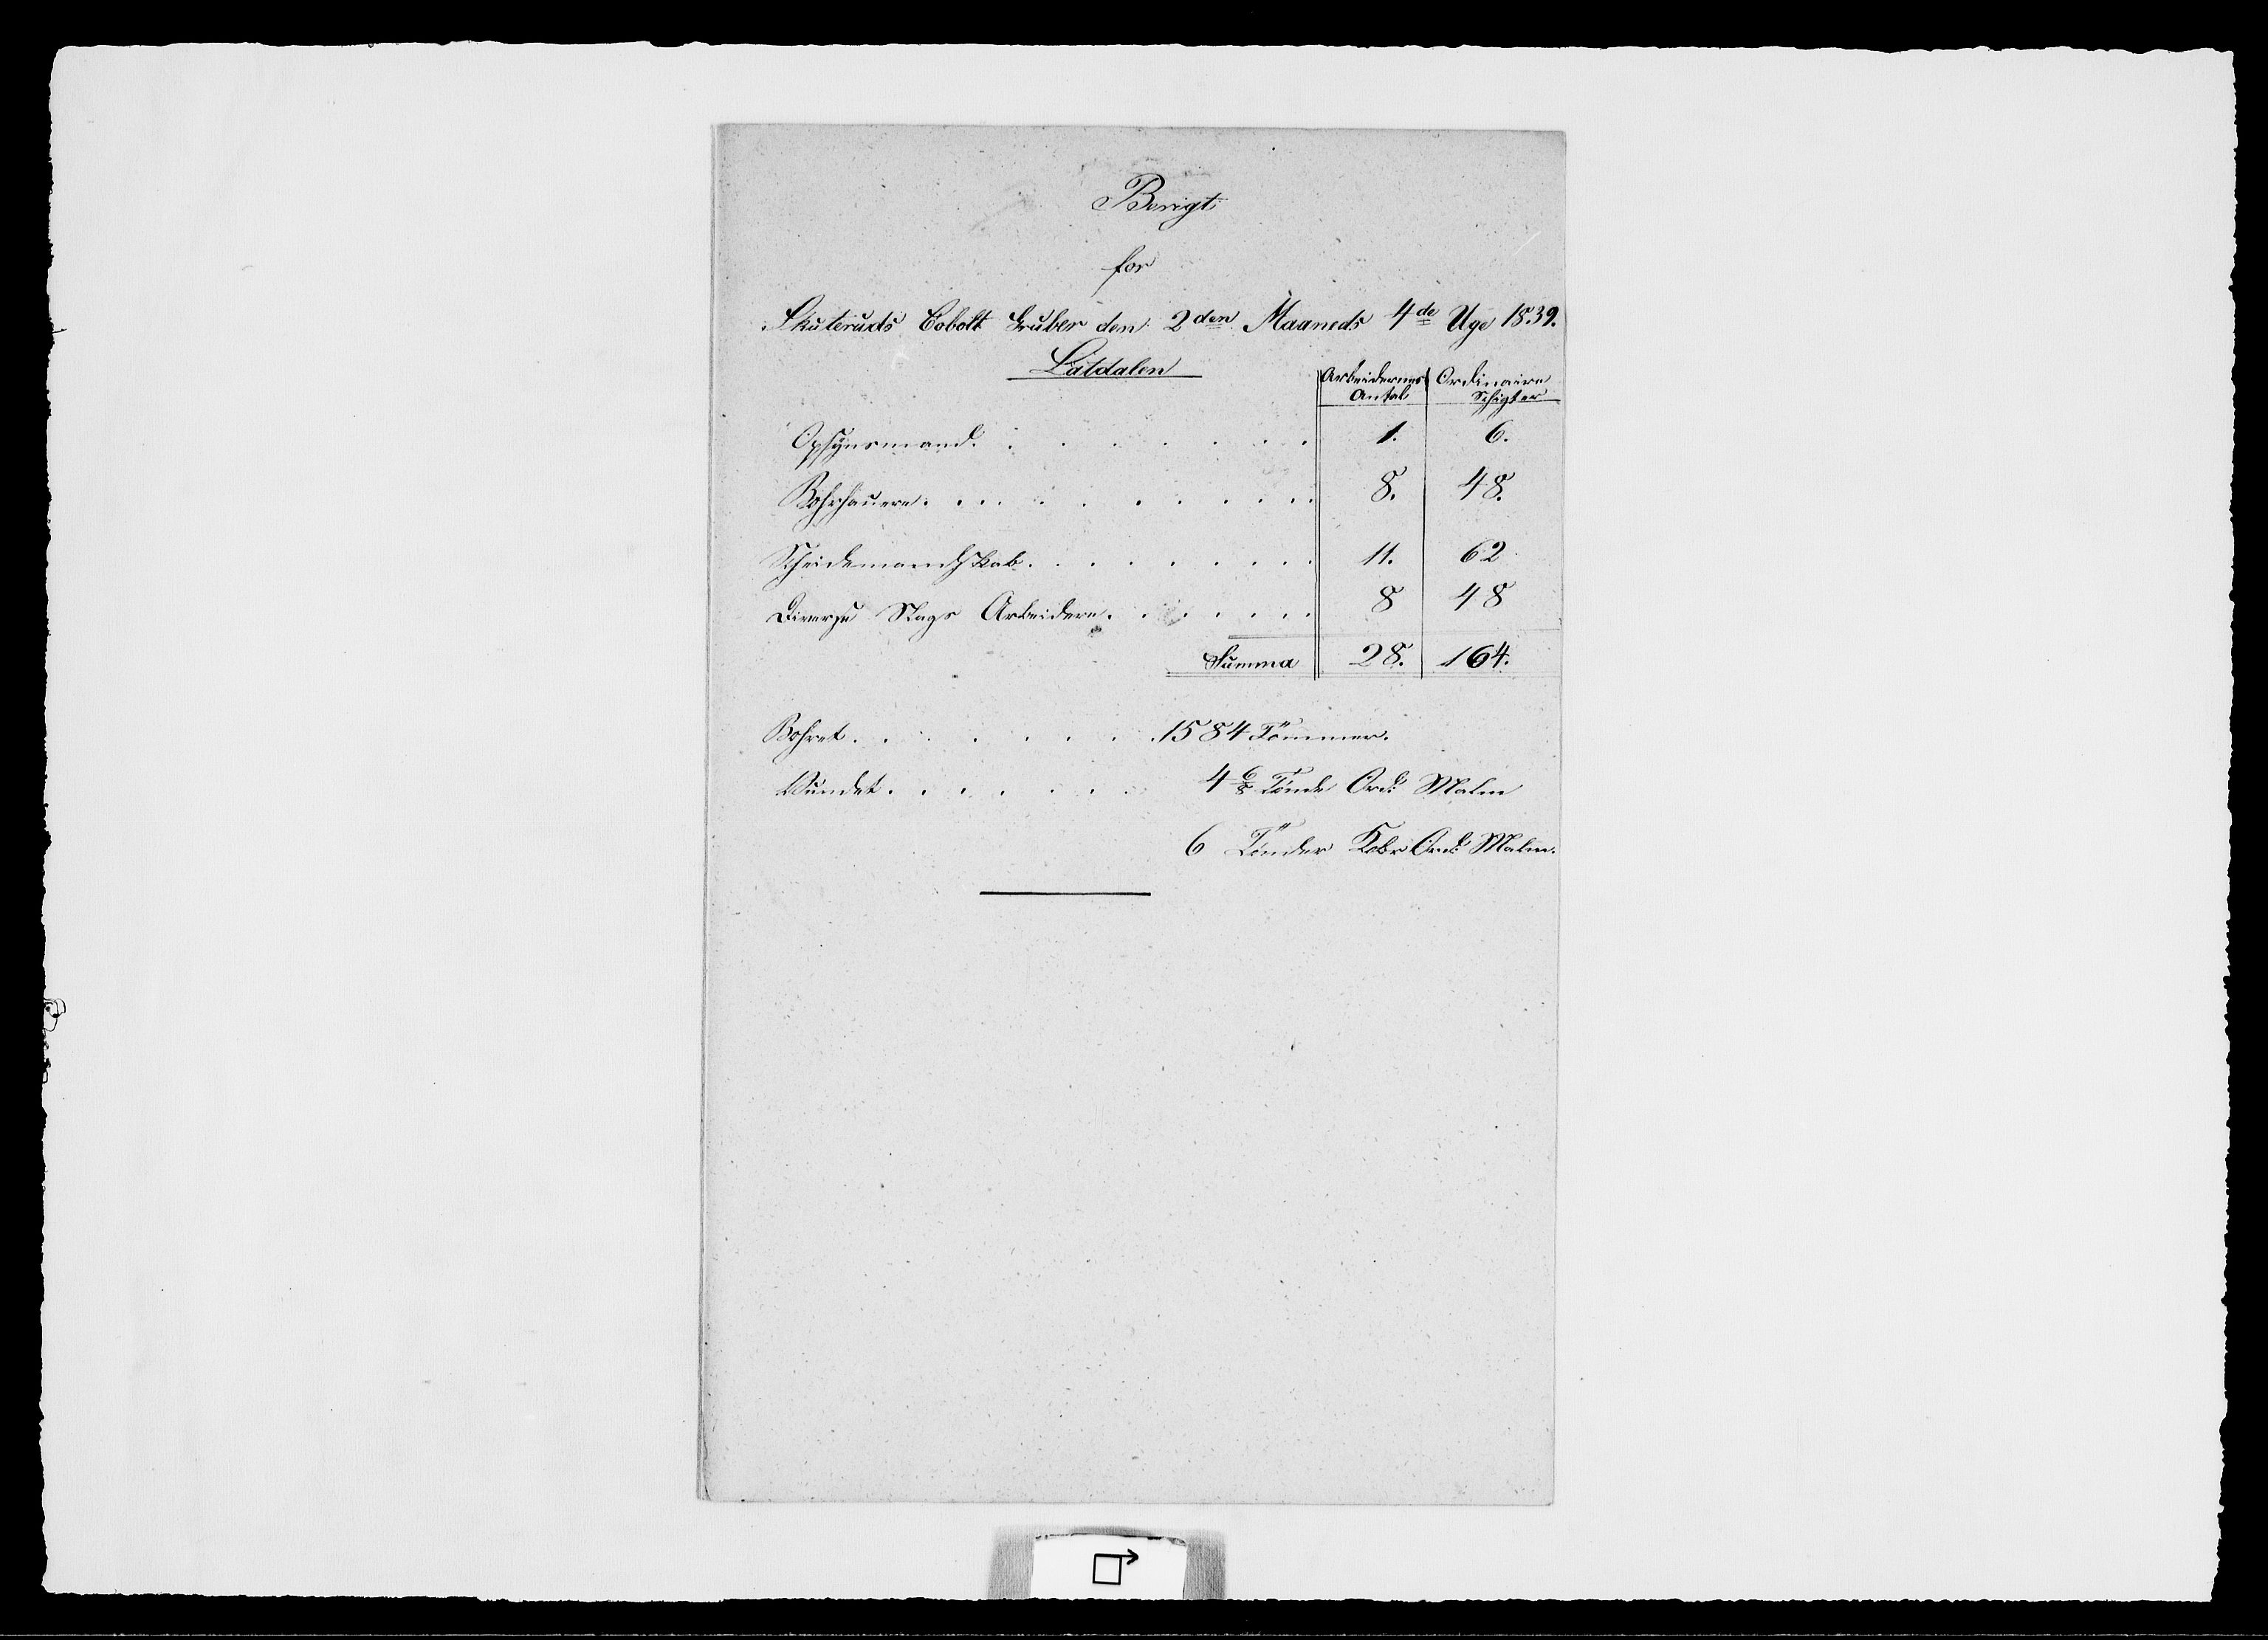 Berigt
for
Skuteruds Cobolt Gruber den 2den Maaneds 4de Uge 1839.
Latdalen
Arbeidernes Antal | Ordinaire Schigter
Opsynsmand. . . . . . . . 1. 6.
Bohrhauere. . . . . . . . . 8. 48.
Scheidemandskab. . . . . . . . 11. 62.
Diverse Slags Arbeidere. . . . . . . 8 48
Summa 28. 164.
Bohret. . . . . . . . 1584 Tömmer.
Vundet. . . . . . . 4 6/8 Tönde Ord: Malm
6 Tönder Ord: Malm.